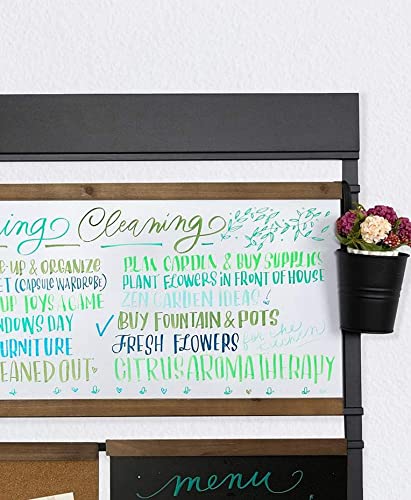 ing Cleaning
E-UP & ORGANIZE
ET (CAPSULE WARDROBE)
UP TOYS & GAME
NDOWS DAY
URNITURE
LEANED OUT
PLAN GARDEN & BUY SUPPLIES
PLANT FLOWERS IN FRONT OF HOUSE
ZEN GARDEN IDEAS
BUY FOUNTAIN & POTS
FRESH FLOWERS for the kitchen
CITRUS AROMATHERAPY
menu